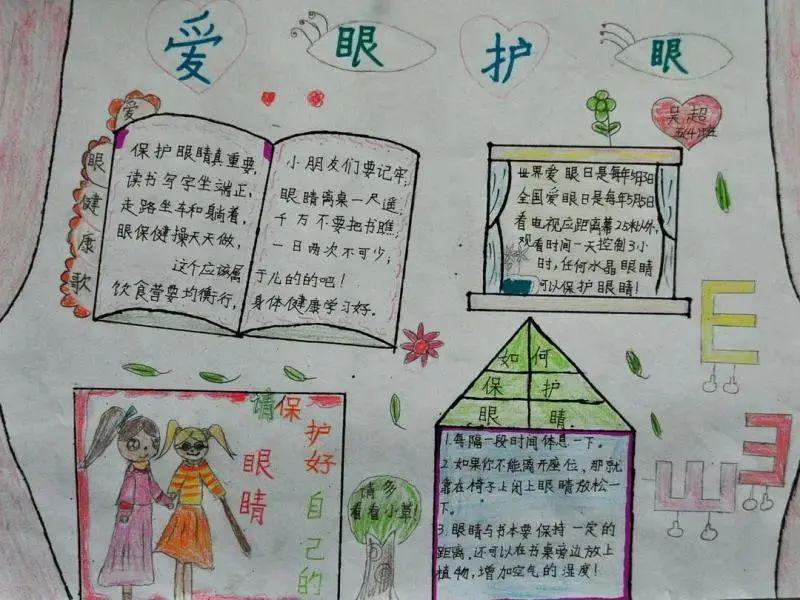 爱 眼 护 眼
吴超
爱眼健康歌
保护眼睛真重要,
读书写字坐端正,
走路坐车和躺着,
眼保健操天天做,
这个应该属
饮食营要均衡行,
小朋友们要记牢;
眼睛离桌一尺遥,
千万不要把书瞧,
一日两次不可少;
于儿的的吧!
身体健康学习好。
世界爱眼日是每年
全国爱眼日是每年5月5日
看电视应距离幕2.5米以外,
观看时间一天控制3小
时,任何水晶眼睛
可以保护眼睛!
E
E
E
请保护好自己的
眼睛
请多
看看小草!
如何
保护
眼睛
1.每隔一段时间休息一下。
2.如果你不能离开座位,那就
靠在椅子上闭上眼睛放松一
下。
3.眼睛与书本要保持一定的
距离.还可以在书桌旁边放上
植物,增加空气的湿度!